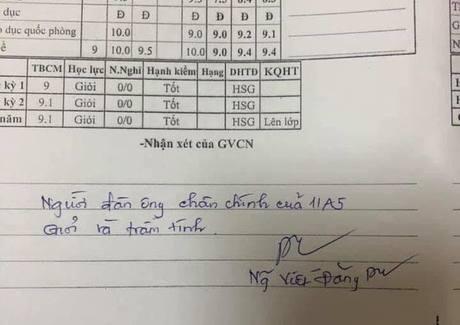 dục Đ Đ Đ Đ Đ
dục quốc phòng 10.0 9.0 9.0 9.2 9.1
ề 9 10.0 9.5 10.0 9.0 9.4 9.4
TBCM Học lực N.Nghỉ Hạnh kiểm Hạng DHTĐ KQHT
kỳ 1 9 Giỏi 0/0 Tốt HSG
kỳ 2 9.1 Giỏi 0/0 Tốt HSG
năm 9.1 Giỏi 0/0 Tốt HSG Lên lớp
-Nhận xét của GVCN
Người đàn ông chân chính của 11A5
Giỏi và trầm tính.
Ng Viết Đăng